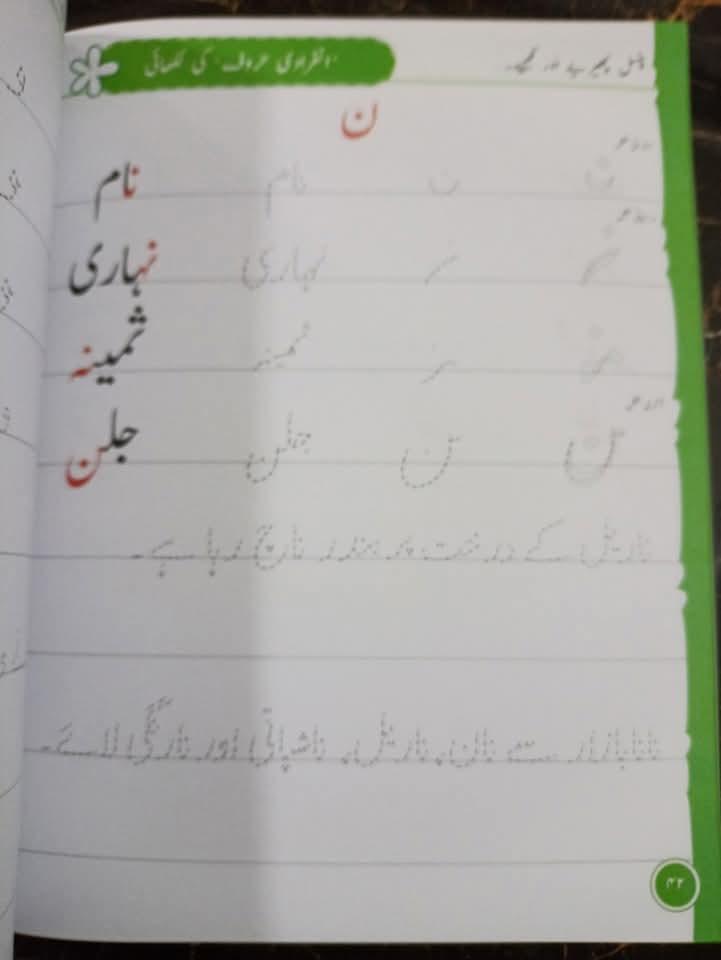 پنسل پھیریے اور لکھیے۔ "انفرادی حروف" کی لکھائی
ن
ن نام نام
نہاری نہاری
ثمینہ ثمینہ
ن ن جلن جلن
ناریل کے درخت پر بندر ناچ رہا ہے۔
نانا بازار سے نان، ناریل، ناشپاتی اور نارنگی لائے۔
۴۲